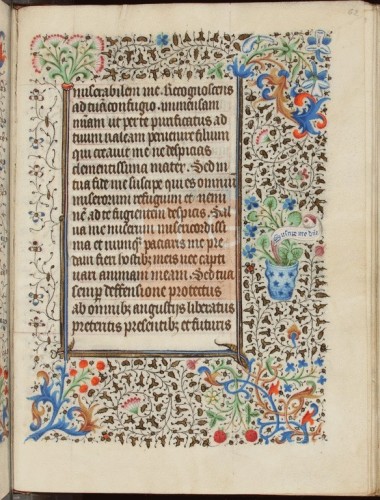 miserabilem me. Recognoscens
ad tuā confugio. immensam
miam ut per te purificatus ad
tuum ualeam peruenire filium
qui creauit me ne despicias
clementissima mater. Sed in
tua fide me suscipe qui es omniū
miserorum refugium et nemi
nē ad te fugientem despicis. Sal
ua me misericordissi
ma et nunqȝ paciaris me pre
dam fieri hostibȝ meis nec capti
uari animam meam. Sed tua
semp deffensione protectus
ab omnibȝ angustijs liberatus
preteritis presentibȝ et futuris